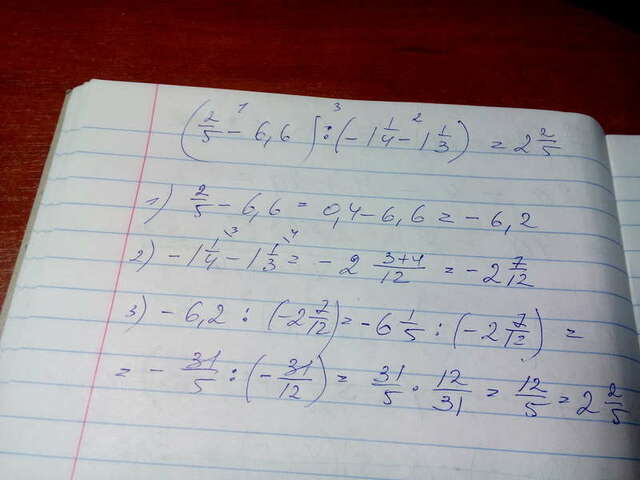 (2/5 - 6,6) : (-1 1/4 - 1 1/3) = 2 2/5
1 3 2
1) 2/5 - 6,6 = 0,4 - 6,6 = -6,2
2) -1 1/4 \3 - 1 1/3 \4 = -2 3+4/12 = -2 7/12
3) -6,2 : (-2 7/12) = -6 1/5 : (-2 7/12) =
= -31/5 : (-31/12) = 31/5 · 12/31 = 12/5 = 2 2/5